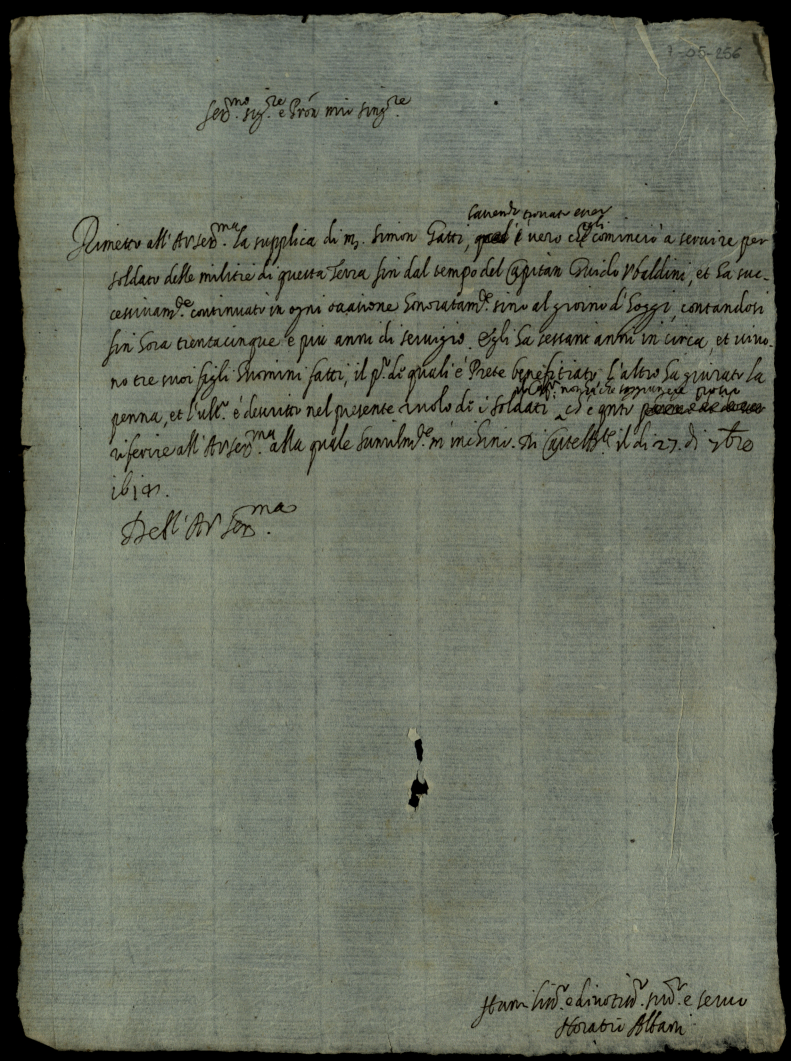 1-05-256
Ser.mo sig.re e Prōn mio sing.re
havendo trovato esser
Rimetto all'A.V. ser.ma la supplica di m. Simon Gatti, è vero ch'egli cominciò a servire per
soldato delle militie di questa Terra sin dal tempo del Capitan Guido Ubaldini, et ha suc-
cessivam.te continuato in ogni occasione honoratam.te sino al giorno d'hoggi, contandosi
sin hora trentacinque e più anni di servigio. Egli ha sessant'anni in circa, et vivo-
no tre suoi figli huomini fatti, il p.o de quali è Prete benefitiato, l'altro ha giurato la
non che
penna, et l'ult.o è descritto nel presente ruolo de i soldati, ch'è q.nto
riferire all'A.V. ser.ma alla quale humilm.te m'inchino. Di il dì 27. di 7bre
161
Dell'A.V. Ser.ma
Humiliss.o e divotiss.o e servo
Horatio Albani